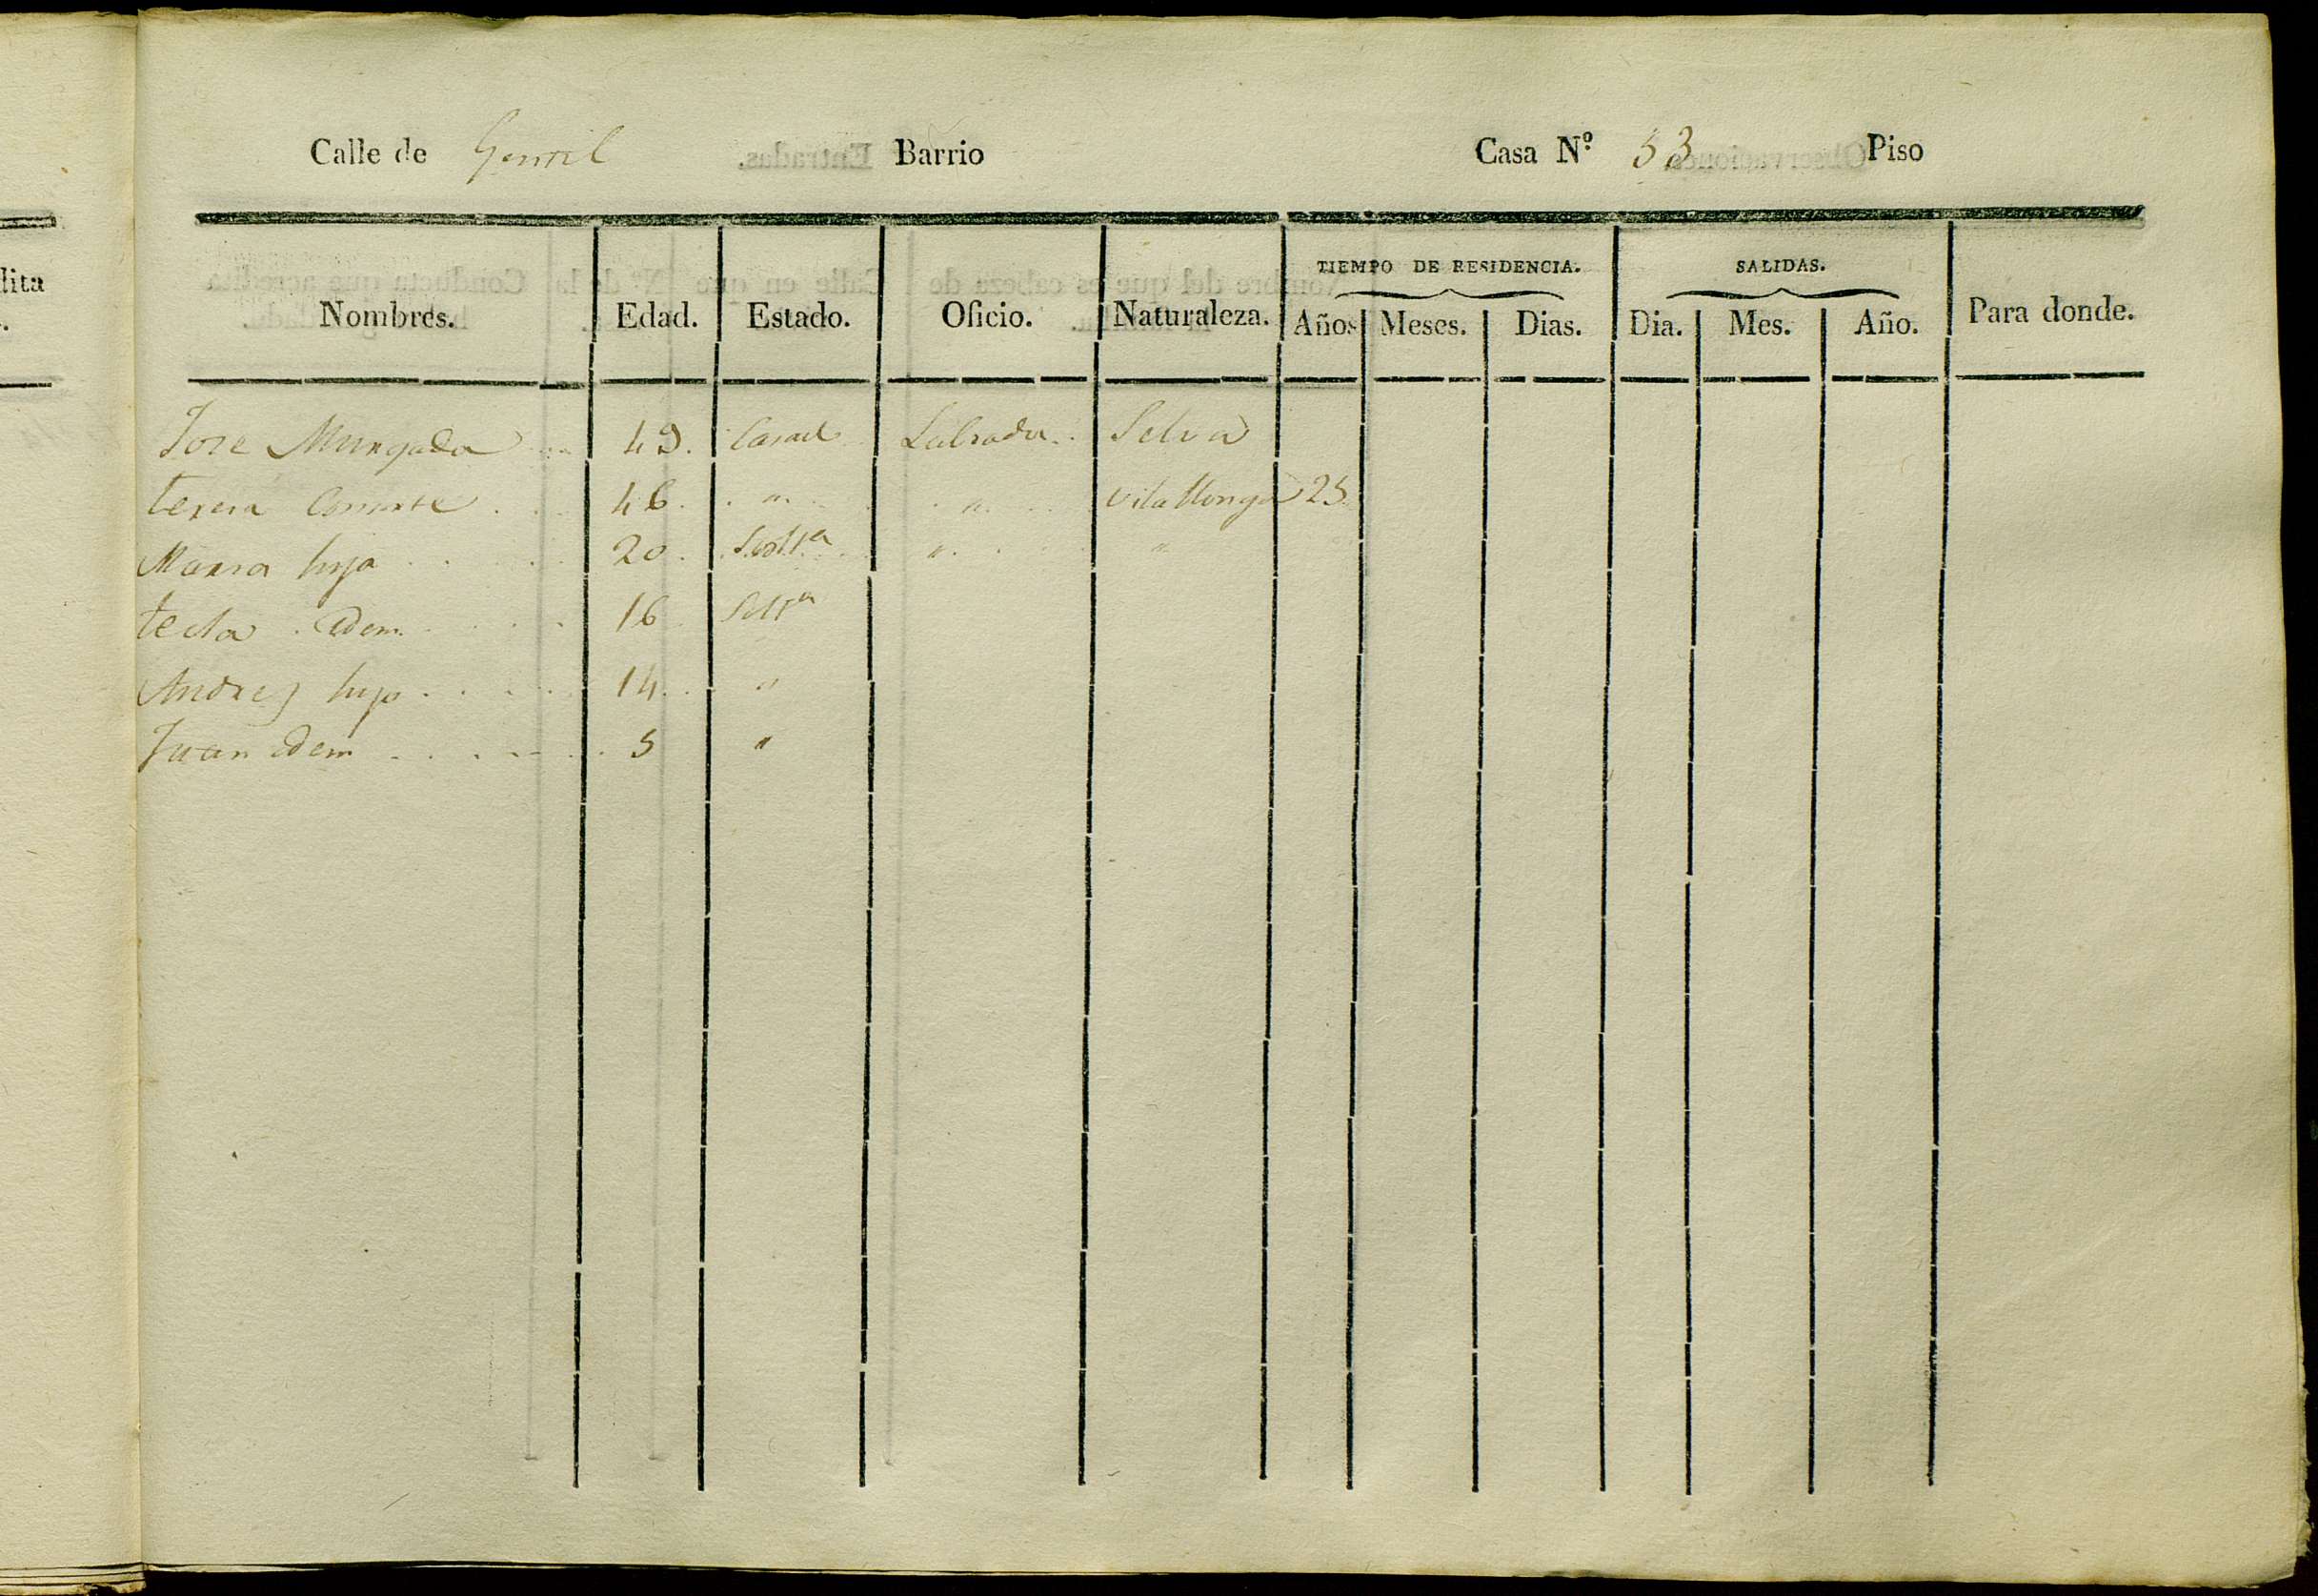 Calle de Gentil Barrio Casa Nº 53 Piso
Nombres. Edad. Estado. Oficio. Naturaleza. TIEMPO DE RESIDENCIA. Años Meses. Dias. SALIDAS. Dia. Mes. Año. Para donde.
Jose Mungada 49. Casad Labrador Selva
teresa Consorte 46. " " Vilallonga 25
Maria hija 20. Solt.ra " "
tecla idem 16 Soltra
Andres hijo 14. "
Juan idem 5 "
dita